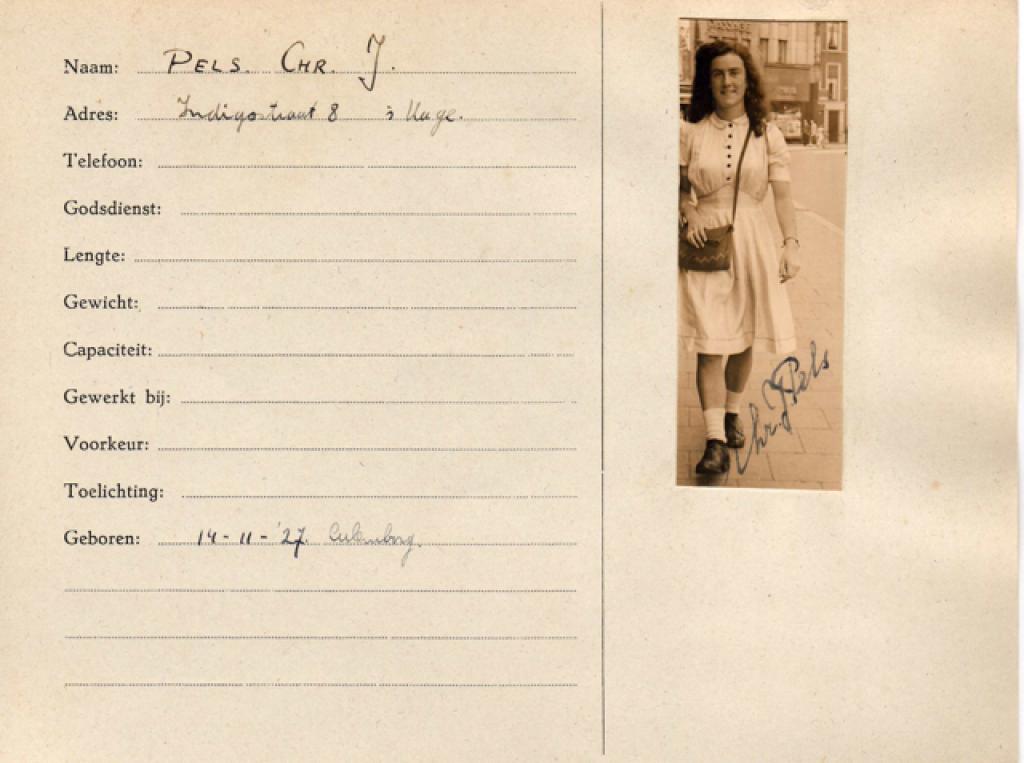 Naam: PELS. CHR. J.
Adres: Indigostraat 8 's Hage.
Telefoon:
Godsdienst:
Lengte:
Gewicht:
Capaciteit:
Gewerkt bij:
Voorkeur:
Toelichting:
Geboren: 14-11-'27. Culemborg.
Chr. J Pels